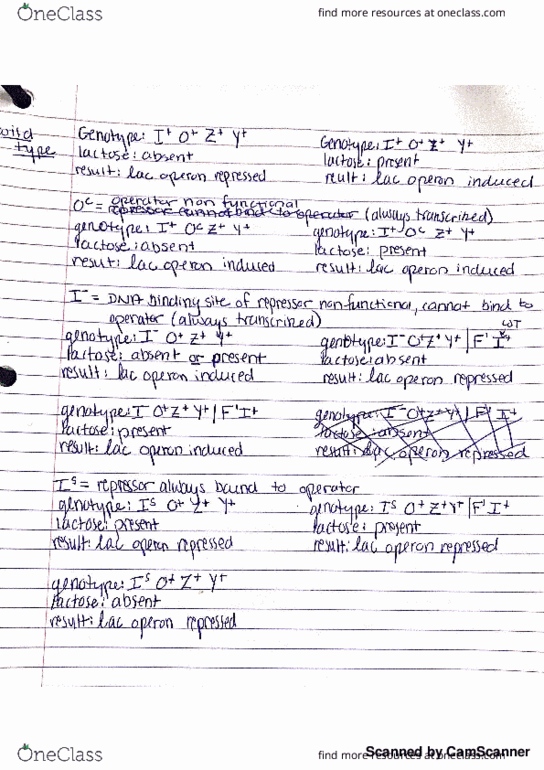 OneClass
find more resources at oneclass.com
wild type
Genotype: I⁺ O⁺ Z⁺ Y⁺
lactose: absent
result: lac operon repressed
Genotype: I⁺ O⁺ Z⁺ Y⁺
lactose: present
reult: lac operon induced
Oᶜ = operator non functional
repressor cannot bind to operator (always transcribed)
genotype: I⁺ Oᶜ Z⁺ Y⁺
lactose: absent
result: lac operon induced
genotype: I⁺ Oᶜ Z⁺ Y⁺
lactose: present
result: lac operon induced
I⁻ = DNA binding site of repressor nonfunctional, cannot bind to
operator (always transcribed)
genotype: I⁻ O⁺ Z⁺ Y⁺
lactose: absent or present
result: lac operon induced
WT
genotype: I⁻ O⁺Z⁺ Y⁺ | F' I⁺
lactose: absent
result: lac operon repressed
genotype: I⁻ O⁺Z⁺ Y⁺ | F' I⁺
lactose: present
result: lac operon induced
genotype: I⁻ O⁺Z⁺Y⁺ | F' I⁺
lactose: absent
result: lac operon repressed
Iˢ = repressor always bound to operator
genotype: Iˢ O⁺ Z⁺ Y⁺
lactose: present
result: lac operon repressed
genotype: Iˢ O⁺ Z⁺Y⁺ | F' I⁺
lactose: present
result: lac operon repressed
genotype: Iˢ O⁺ Z⁺ Y⁺
lactose: absent
result: lac operon repressed
OneClass
find more resources at oneclass.com
Scanned by CamScanner